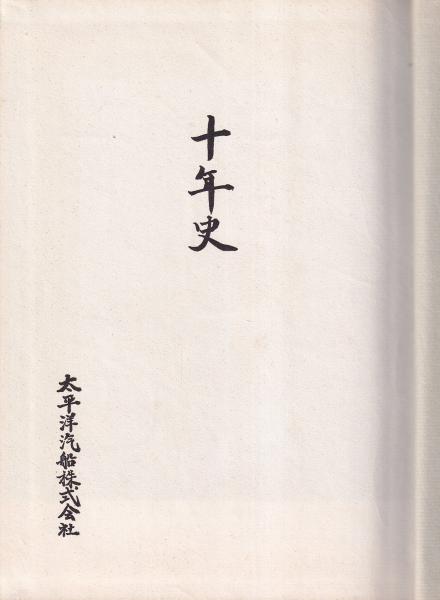 十年史
太平洋汽船株式会社